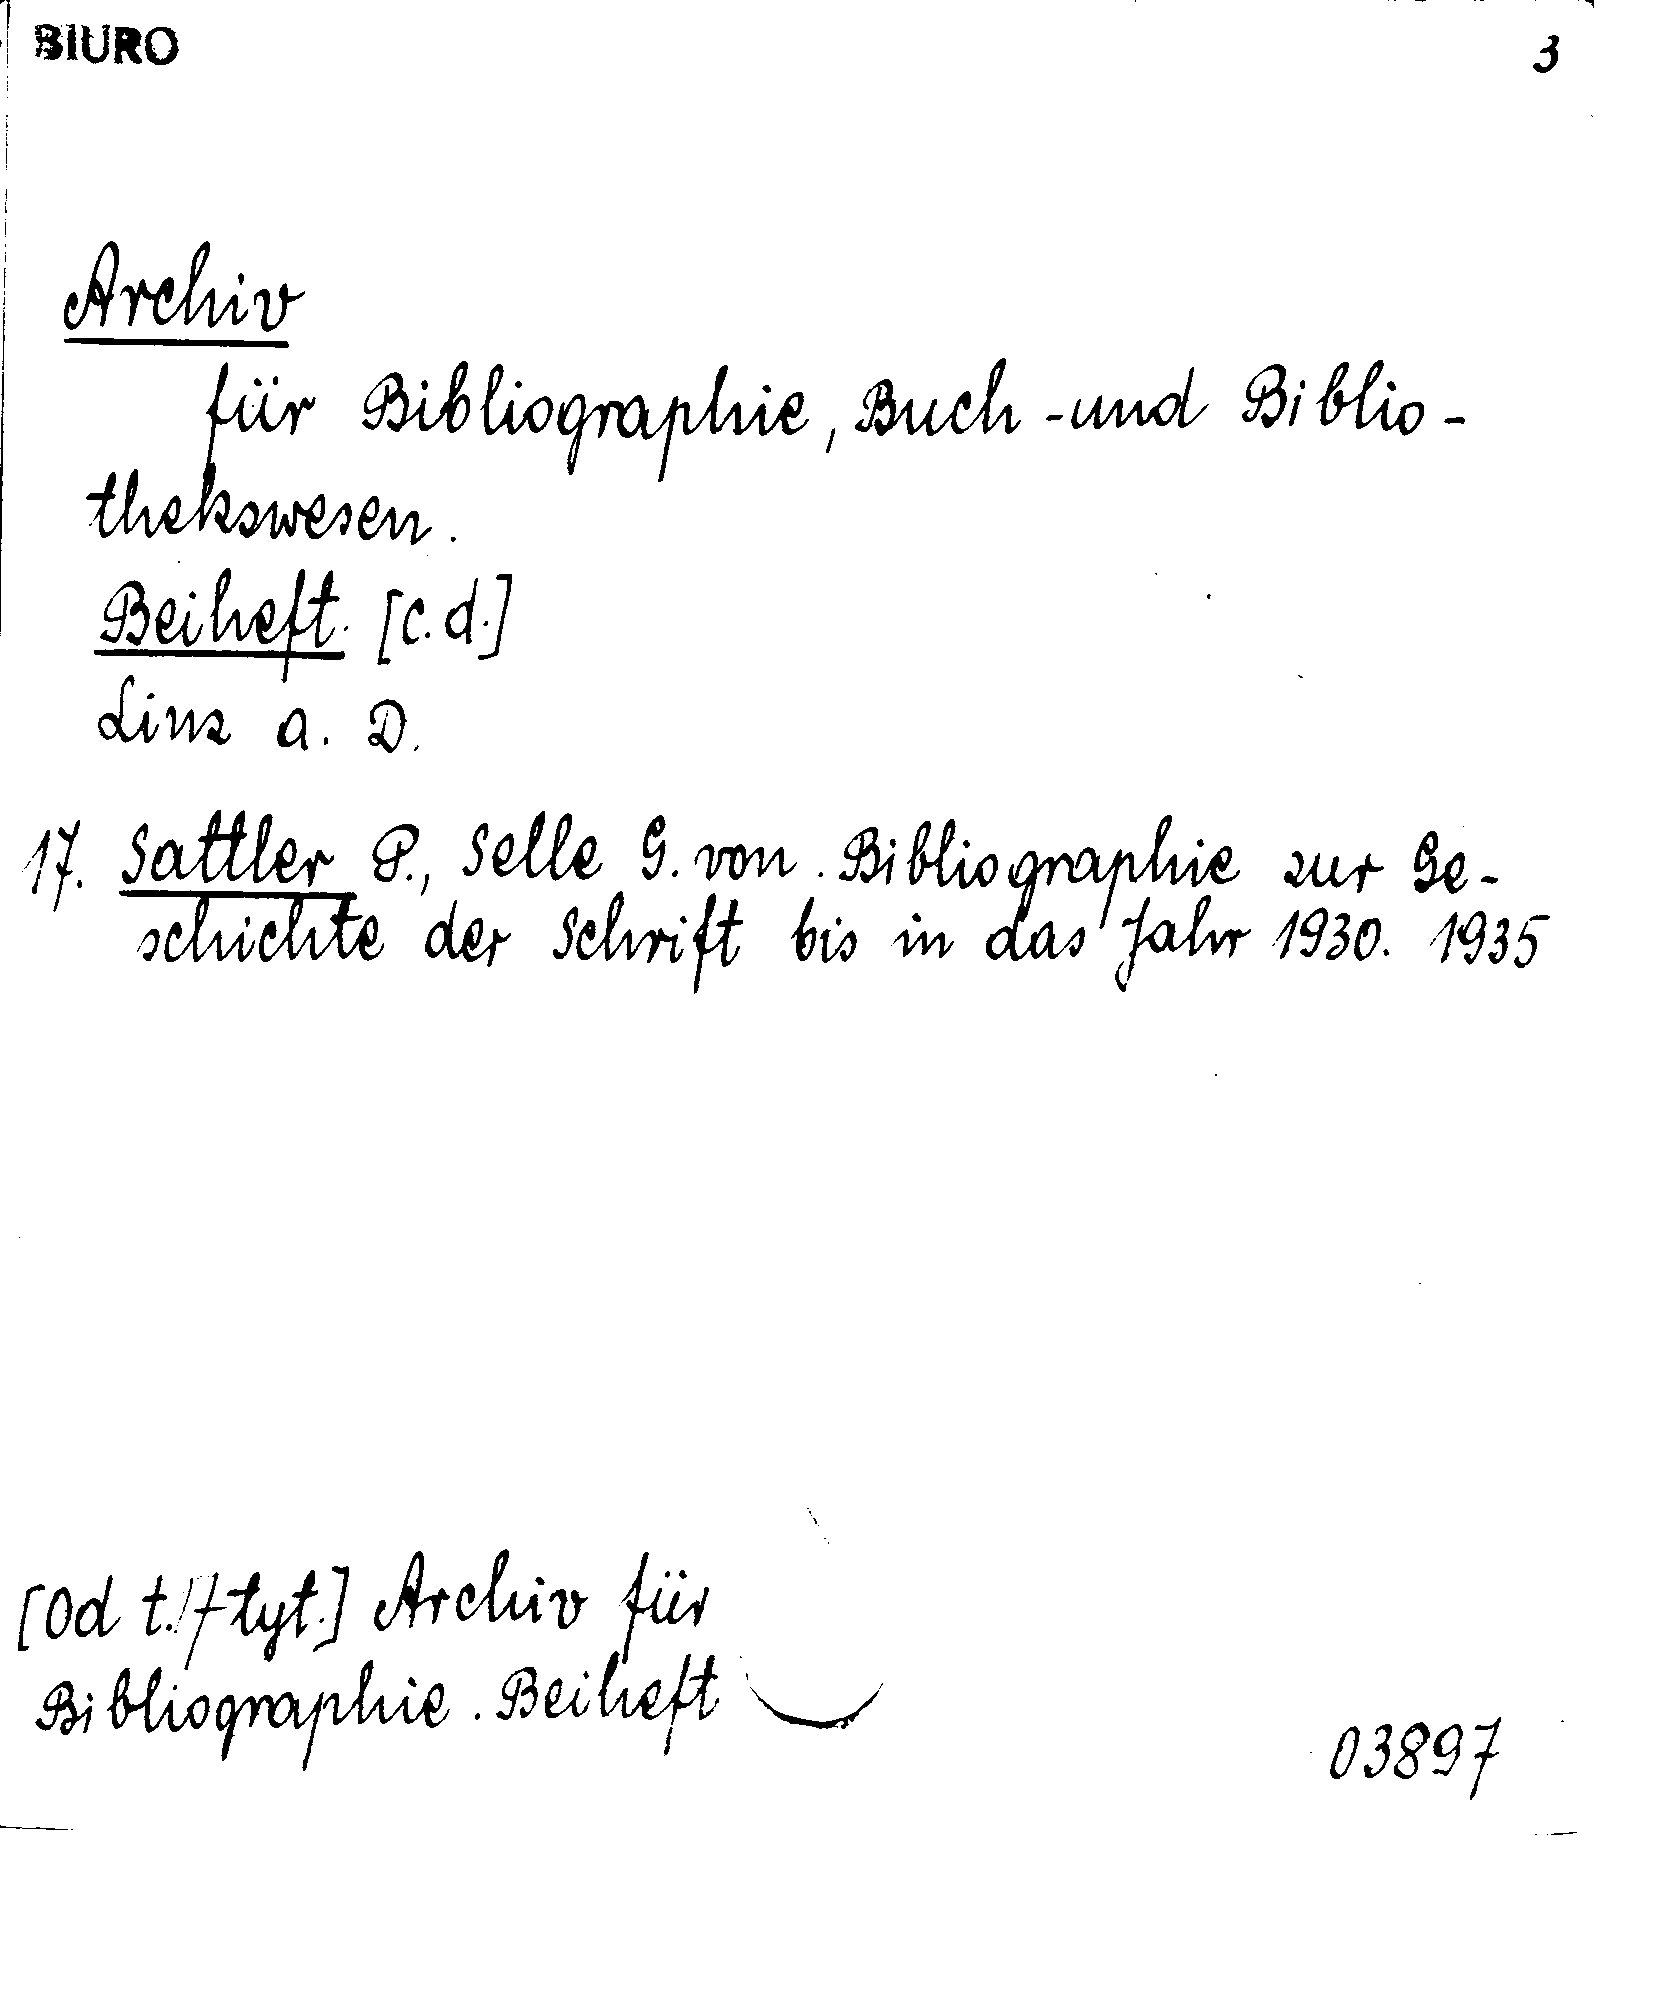 BIURO 3
Archiv
für Bibliographie, Buch-und Biblio-
thekswesen.
Beiheft. [c.d.]
Linz a. D.
17. Sattler P., Selle G. von. Bibliographie zur Ge-
schichte der Schrift bis in das Jahr 1930. 1935
[Od t.17 tyt.] Archiv für
Bibliographie. Beiheft
03897